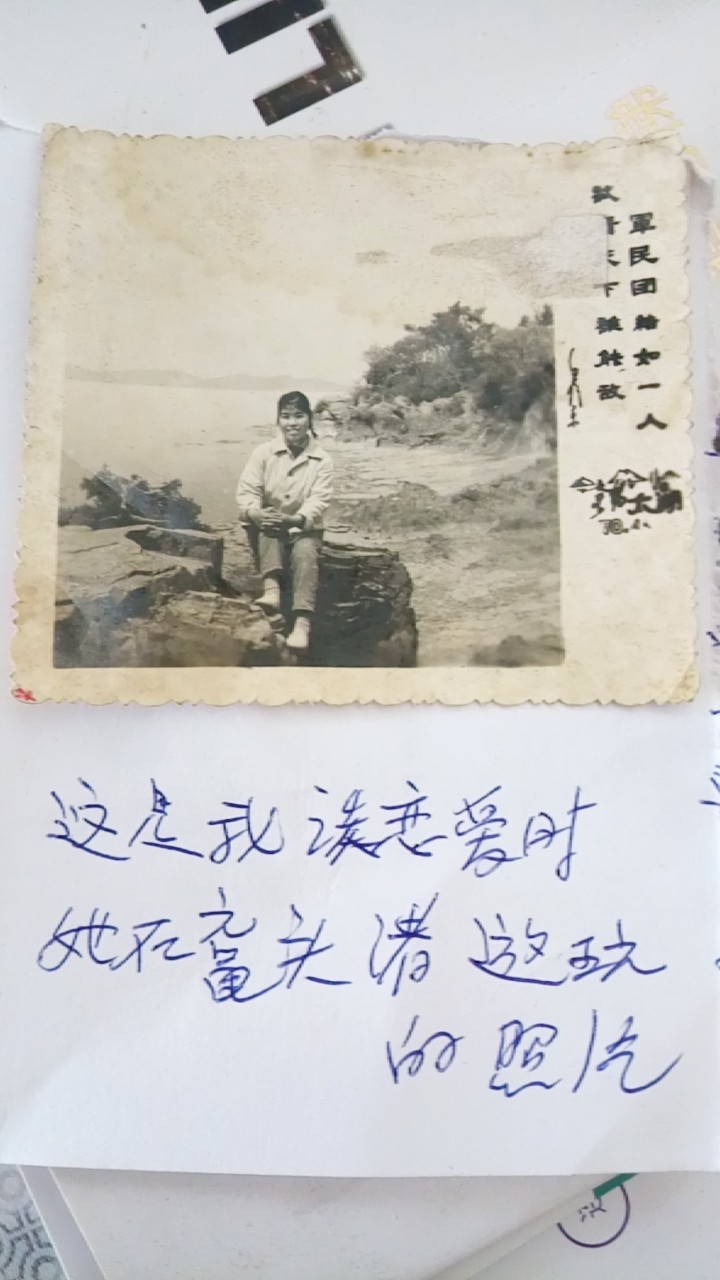 軍民团結如一人
試看天下誰能敵
这是我谈恋爱时
她在鼋头渚遊玩
的照片